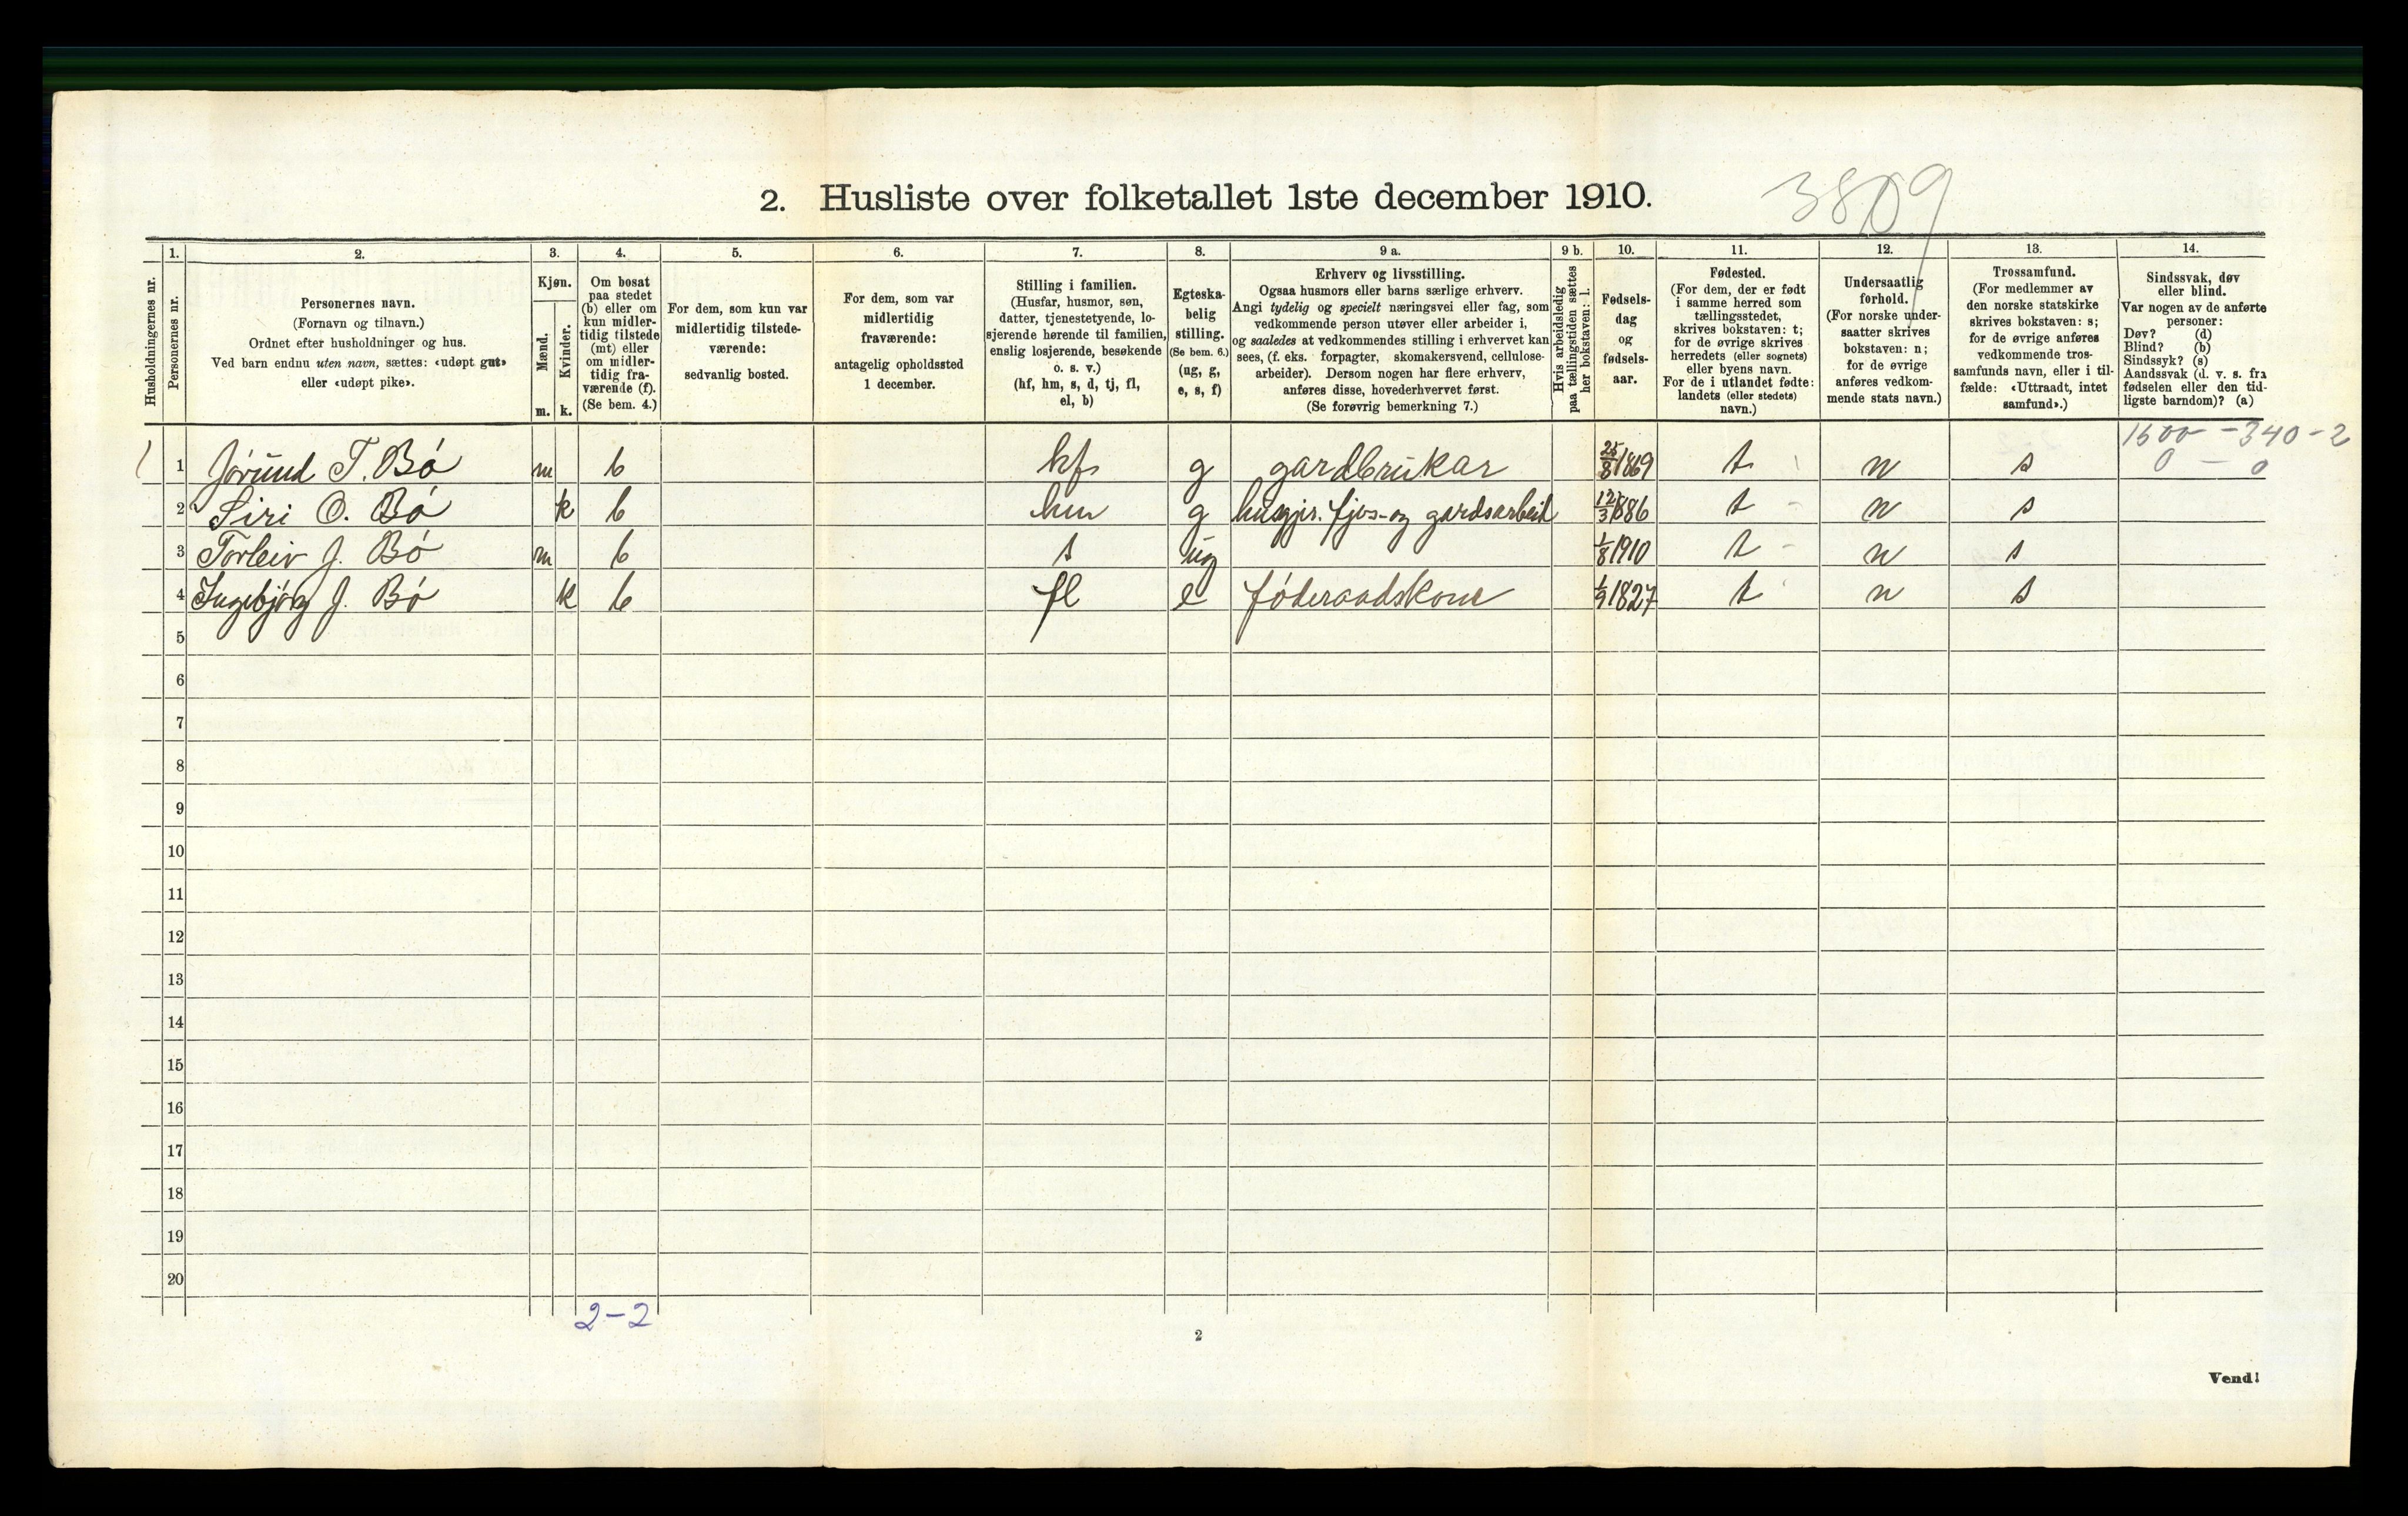 2. Husliste over folketallet 1ste december 1910.
3809
1. 2. 3. 4. 5. 6. 7. 8. 9 a. 9 b. 10. 11. 12. 13. 14.
Husholdningernes nr.
Personernes nr.
Personernes navn.
(Fornavn og tilnavn.)
Ordnet efter husholdninger og hus.
Ved barn endnu uten navn, sættes: «udøpt gut»
eller «udøpt pike».
Kjøn.
Mænd.
Kvinder.
m. k.
Om bosat
paa stedet
(b) eller om
kun midler-
tidig tilstede
(mt) eller
om midler-
tidig fra-
værende (f).
(Se bem. 4.)
For dem, som kun var
midlertidig tilstede-
værende:
sedvanlig bosted.
For dem, som var
midlertidig
fraværende:
antagelig opholdssted
1 december.
Stilling i familien.
(Husfar, husmor, søn,
datter, tjenestetyende, lo-
sjerende hørende til familien,
enslig losjerende, besøkende
o. s. v.)
(hf, hm, s, d, tj, fl,
el, b)
Egteska-
belig
stilling.
(Se bem. 6.)
(ug, g,
e, s, f)
Erhverv og livsstilling.
Ogsaa husmors eller barns særlige erhverv.
Angi tydelig og specielt næringsvei eller fag, som
vedkommende person utøver eller arbeider i,
og saaledes at vedkommendes stilling i erhvervet kan
sees, (f. eks. forpagter, skomakersvend, cellulose-
arbeider). Dersom nogen har flere erhverv,
anføres disse, hovederhvervet først.
(Se forøvrig bemerkning 7.)
Hvis arbeidsledig
paa tællingstiden sættes
her bokstaven: l.
Fødsels-
dag
og
fødsels-
aar.
Fødested.
(For dem, der er født
i samme herred som
tællingsstedet,
skrives bokstaven: t;
for de øvrige skrives
herredets (eller sognets)
eller byens navn.
For de i utlandet fødte:
landets (eller stedets)
navn.)
Undersaatlig
forhold.
(For norske under-
saatter skrives
bokstaven: n;
for de øvrige
anføres vedkom-
mende stats navn.)
Trossamfund.
(For medlemmer av
den norske statskirke
skrives bokstaven: s;
for de øvrige anføres
vedkommende tros-
samfunds navn, eller i til-
fælde: «Uttraadt, intet
samfund».)
Sindssvak, døv
eller blind.
Var nogen av de anførte
personer:
Døv? (d)
Blind? (b)
Sindssyk? (s)
Aandssvak (d. v. s. fra
fødselen eller den tid-
ligste barndom)? (a)
1600 - 340 - 2
0 - 0
1 Jørund T. Bø m b hf g gardbrukar 25/8 1869 t n s
2 Siri O. Bø k b hm g husgjer. fjos- og gardsarbeid 12/3 1886 t n s
3 Torleiv J. Bø m b s ug 1/8 1910 t n s
4 Ingebjørg J. Bø k b fl e føderaadskone 1/9 1827 t n s
5
6
7
8
9
10
11
12
13
14
15
16
17
18
19
20
2-2
2
Vend!